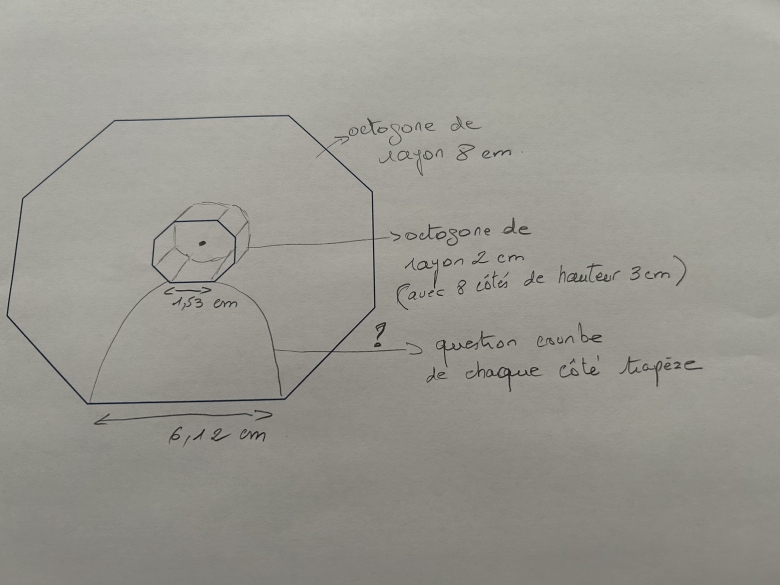 octogone de
rayon 8 cm
octogone de
rayon 2 cm
(avec 8 côtés de hauteur 3cm)
1,53 cm
?
question courbe
de chaque côté trapèze
6,12 cm